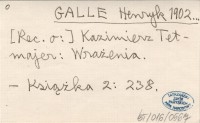 GALLE Henryk 1902...
[Rec. o:] Kazimierz Tet-
majer: Wrażenia.
- Książka 2: 238.